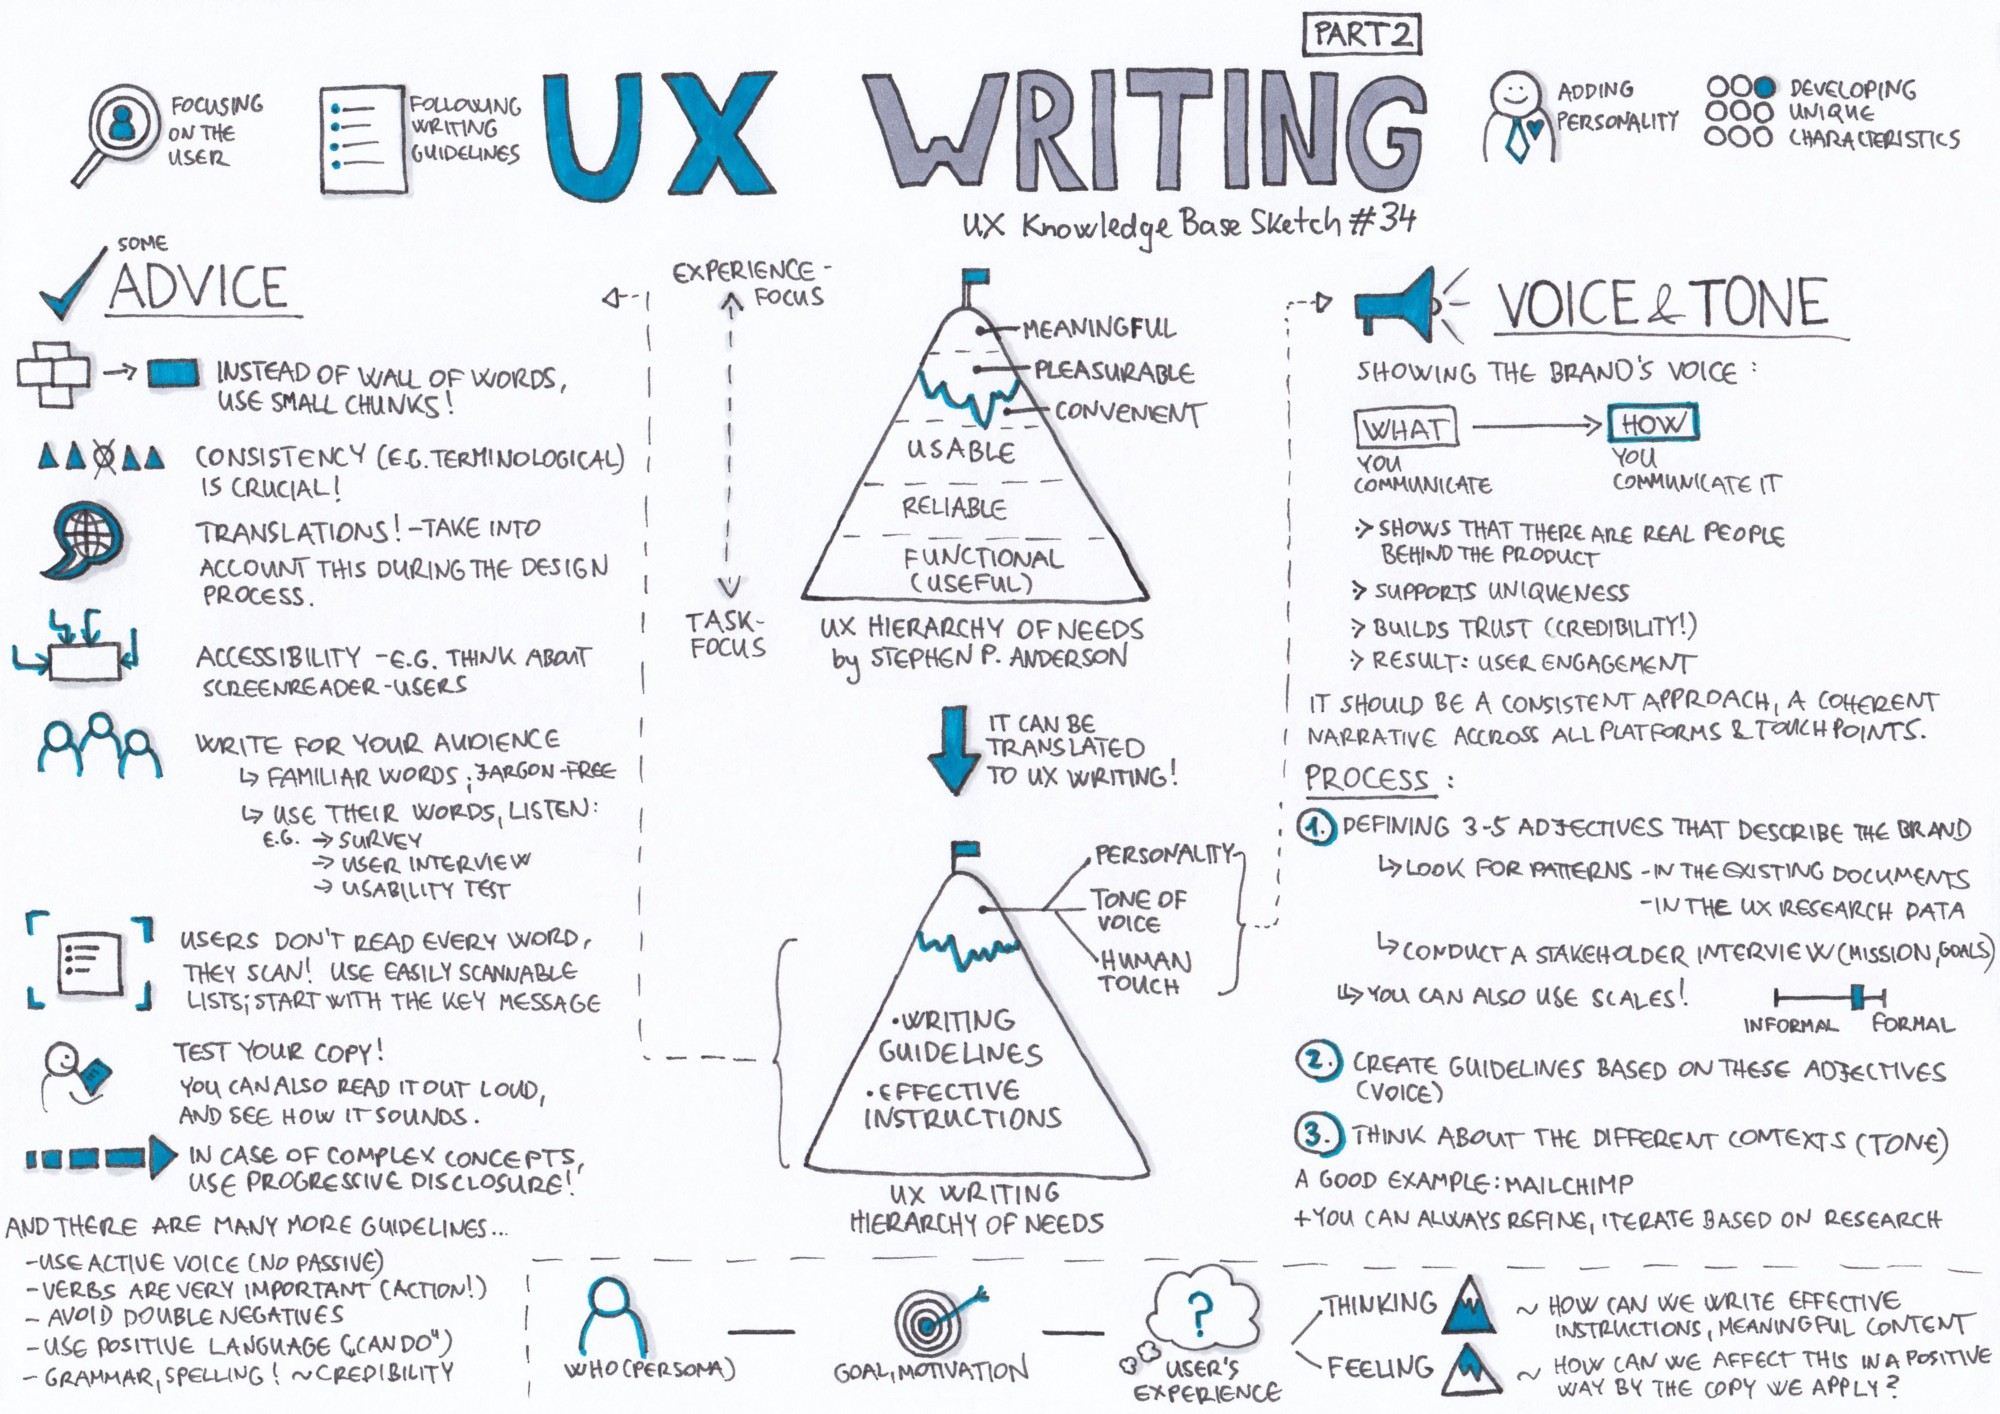 PART 2
UX WRITING
UX Knowledge Base Sketch #34
FOCUSING
ON THE
USER
FOLLOWING
WRITING
GUIDELINES
ADDING
PERSONALITY
DEVELOPING
UNIQUE
CHARACTERISTICS
SOME
ADVICE
INSTEAD OF WALL OF WORDS,
USE SMALL CHUNKS!
CONSISTENCY (E.G. TERMINOLOGICAL)
IS CRUCIAL!
TRANSLATIONS! - TAKE INTO
ACCOUNT THIS DURING THE DESIGN
PROCESS.
ACCESSIBILITY - E.G. THINK ABOUT
SCREENREADER-USERS
WRITE FOR YOUR AUDIENCE
↳ FAMILIAR WORDS; JARGON-FREE
↳ USE THEIR WORDS, LISTEN:
E.G. → SURVEY
→ USER INTERVIEW
→ USABILITY TEST
USERS DON'T READ EVERY WORD,
THEY SCAN! USE EASILY SCANNABLE
LISTS; START WITH THE KEY MESSAGE
TEST YOUR COPY!
YOU CAN ALSO READ IT OUT LOUD,
AND SEE HOW IT SOUNDS.
IN CASE OF COMPLEX CONCEPTS,
USE PROGRESSIVE DISCLOSURE!
AND THERE ARE MANY MORE GUIDELINES...
- USE ACTIVE VOICE (NO PASSIVE)
- VERBS ARE VERY IMPORTANT (ACTION!)
- AVOID DOUBLE NEGATIVES
- USE POSITIVE LANGUAGE („CAN DO")
- GRAMMAR, SPELLING! ~ CREDIBILITY
EXPERIENCE-
FOCUS
TASK-
FOCUS
MEANINGFUL
PLEASURABLE
CONVENIENT
USABLE
RELIABLE
FUNCTIONAL
(USEFUL)
UX HIERARCHY OF NEEDS
by STEPHEN P. ANDERSON
IT CAN BE
TRANSLATED
TO UX WRITING!
PERSONALITY
TONE OF
VOICE
HUMAN
TOUCH
• WRITING
GUIDELINES
• EFFECTIVE
INSTRUCTIONS
UX WRITING
HIERARCHY OF NEEDS
VOICE & TONE
SHOWING THE BRAND'S VOICE:
WHAT
YOU
COMMUNICATE
HOW
YOU
COMMUNICATE IT
> SHOWS THAT THERE ARE REAL PEOPLE
BEHIND THE PRODUCT
> SUPPORTS UNIQUENESS
> BUILDS TRUST (CREDIBILITY!)
> RESULT: USER ENGAGEMENT
IT SHOULD BE A CONSISTENT APPROACH, A COHERENT
NARRATIVE ACCROSS ALL PLATFORMS & TOUCHPOINTS.
PROCESS:
1. DEFINING 3-5 ADJECTIVES THAT DESCRIBE THE BRAND
↳ LOOK FOR PATTERNS - IN THE EXISTING DOCUMENTS
- IN THE UX RESEARCH DATA
↳ CONDUCT A STAKEHOLDER INTERVIEW (MISSION, GOALS)
↳ YOU CAN ALSO USE SCALES!
INFORMAL FORMAL
2. CREATE GUIDELINES BASED ON THESE ADJECTIVES
(VOICE)
3. THINK ABOUT THE DIFFERENT CONTEXTS (TONE)
A GOOD EXAMPLE: MAILCHIMP
+ YOU CAN ALWAYS REFINE, ITERATE BASED ON RESEARCH
WHO (PERSONA)
GOAL, MOTIVATION
?
USER'S
EXPERIENCE
THINKING
~ HOW CAN WE WRITE EFFECTIVE
INSTRUCTIONS, MEANINGFUL CONTENT
FEELING
~ HOW CAN WE AFFECT THIS IN A POSITIVE
WAY BY THE COPY WE APPLY?